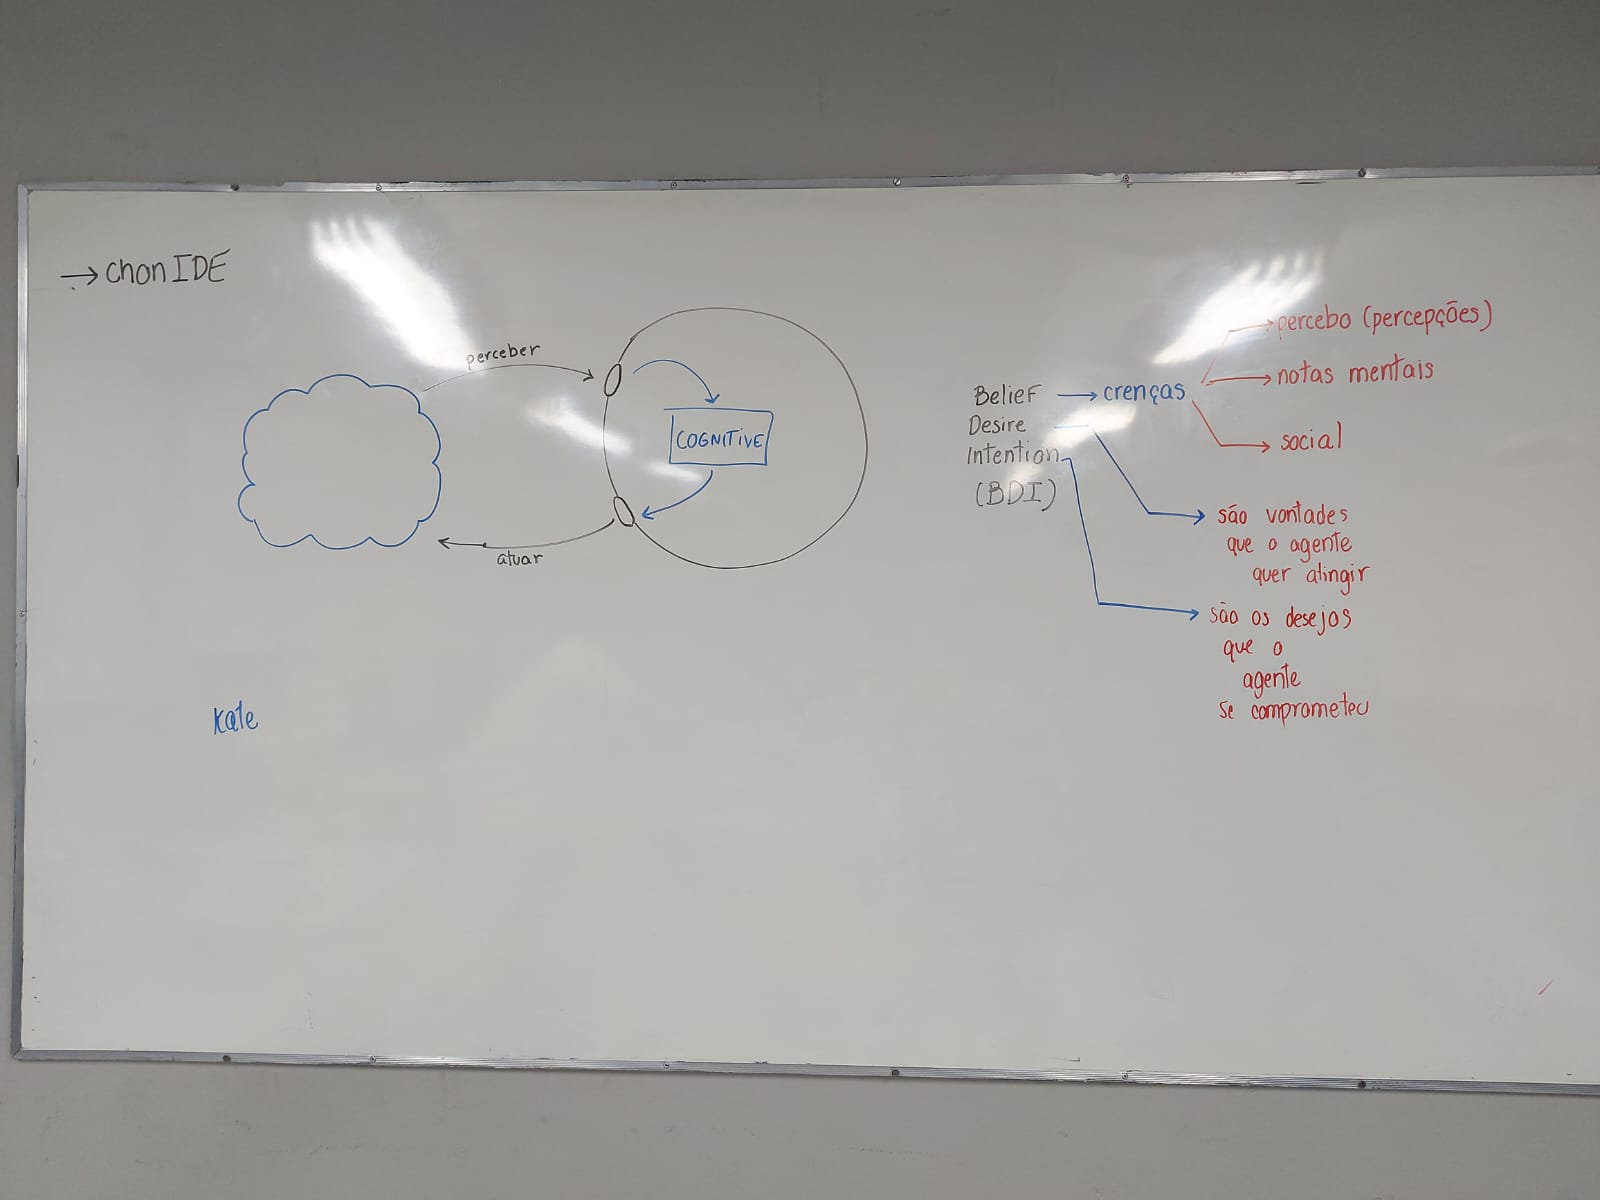 → chonIDE
perceber
COGNITIVE
atuar
Kate
Belief → crenças
Desire
Intention
(BDI)
percebo (percepções)
notas mentais
social
são vontades
que o agente
quer atingir
são os desejos
que o
agente
se comprometeu